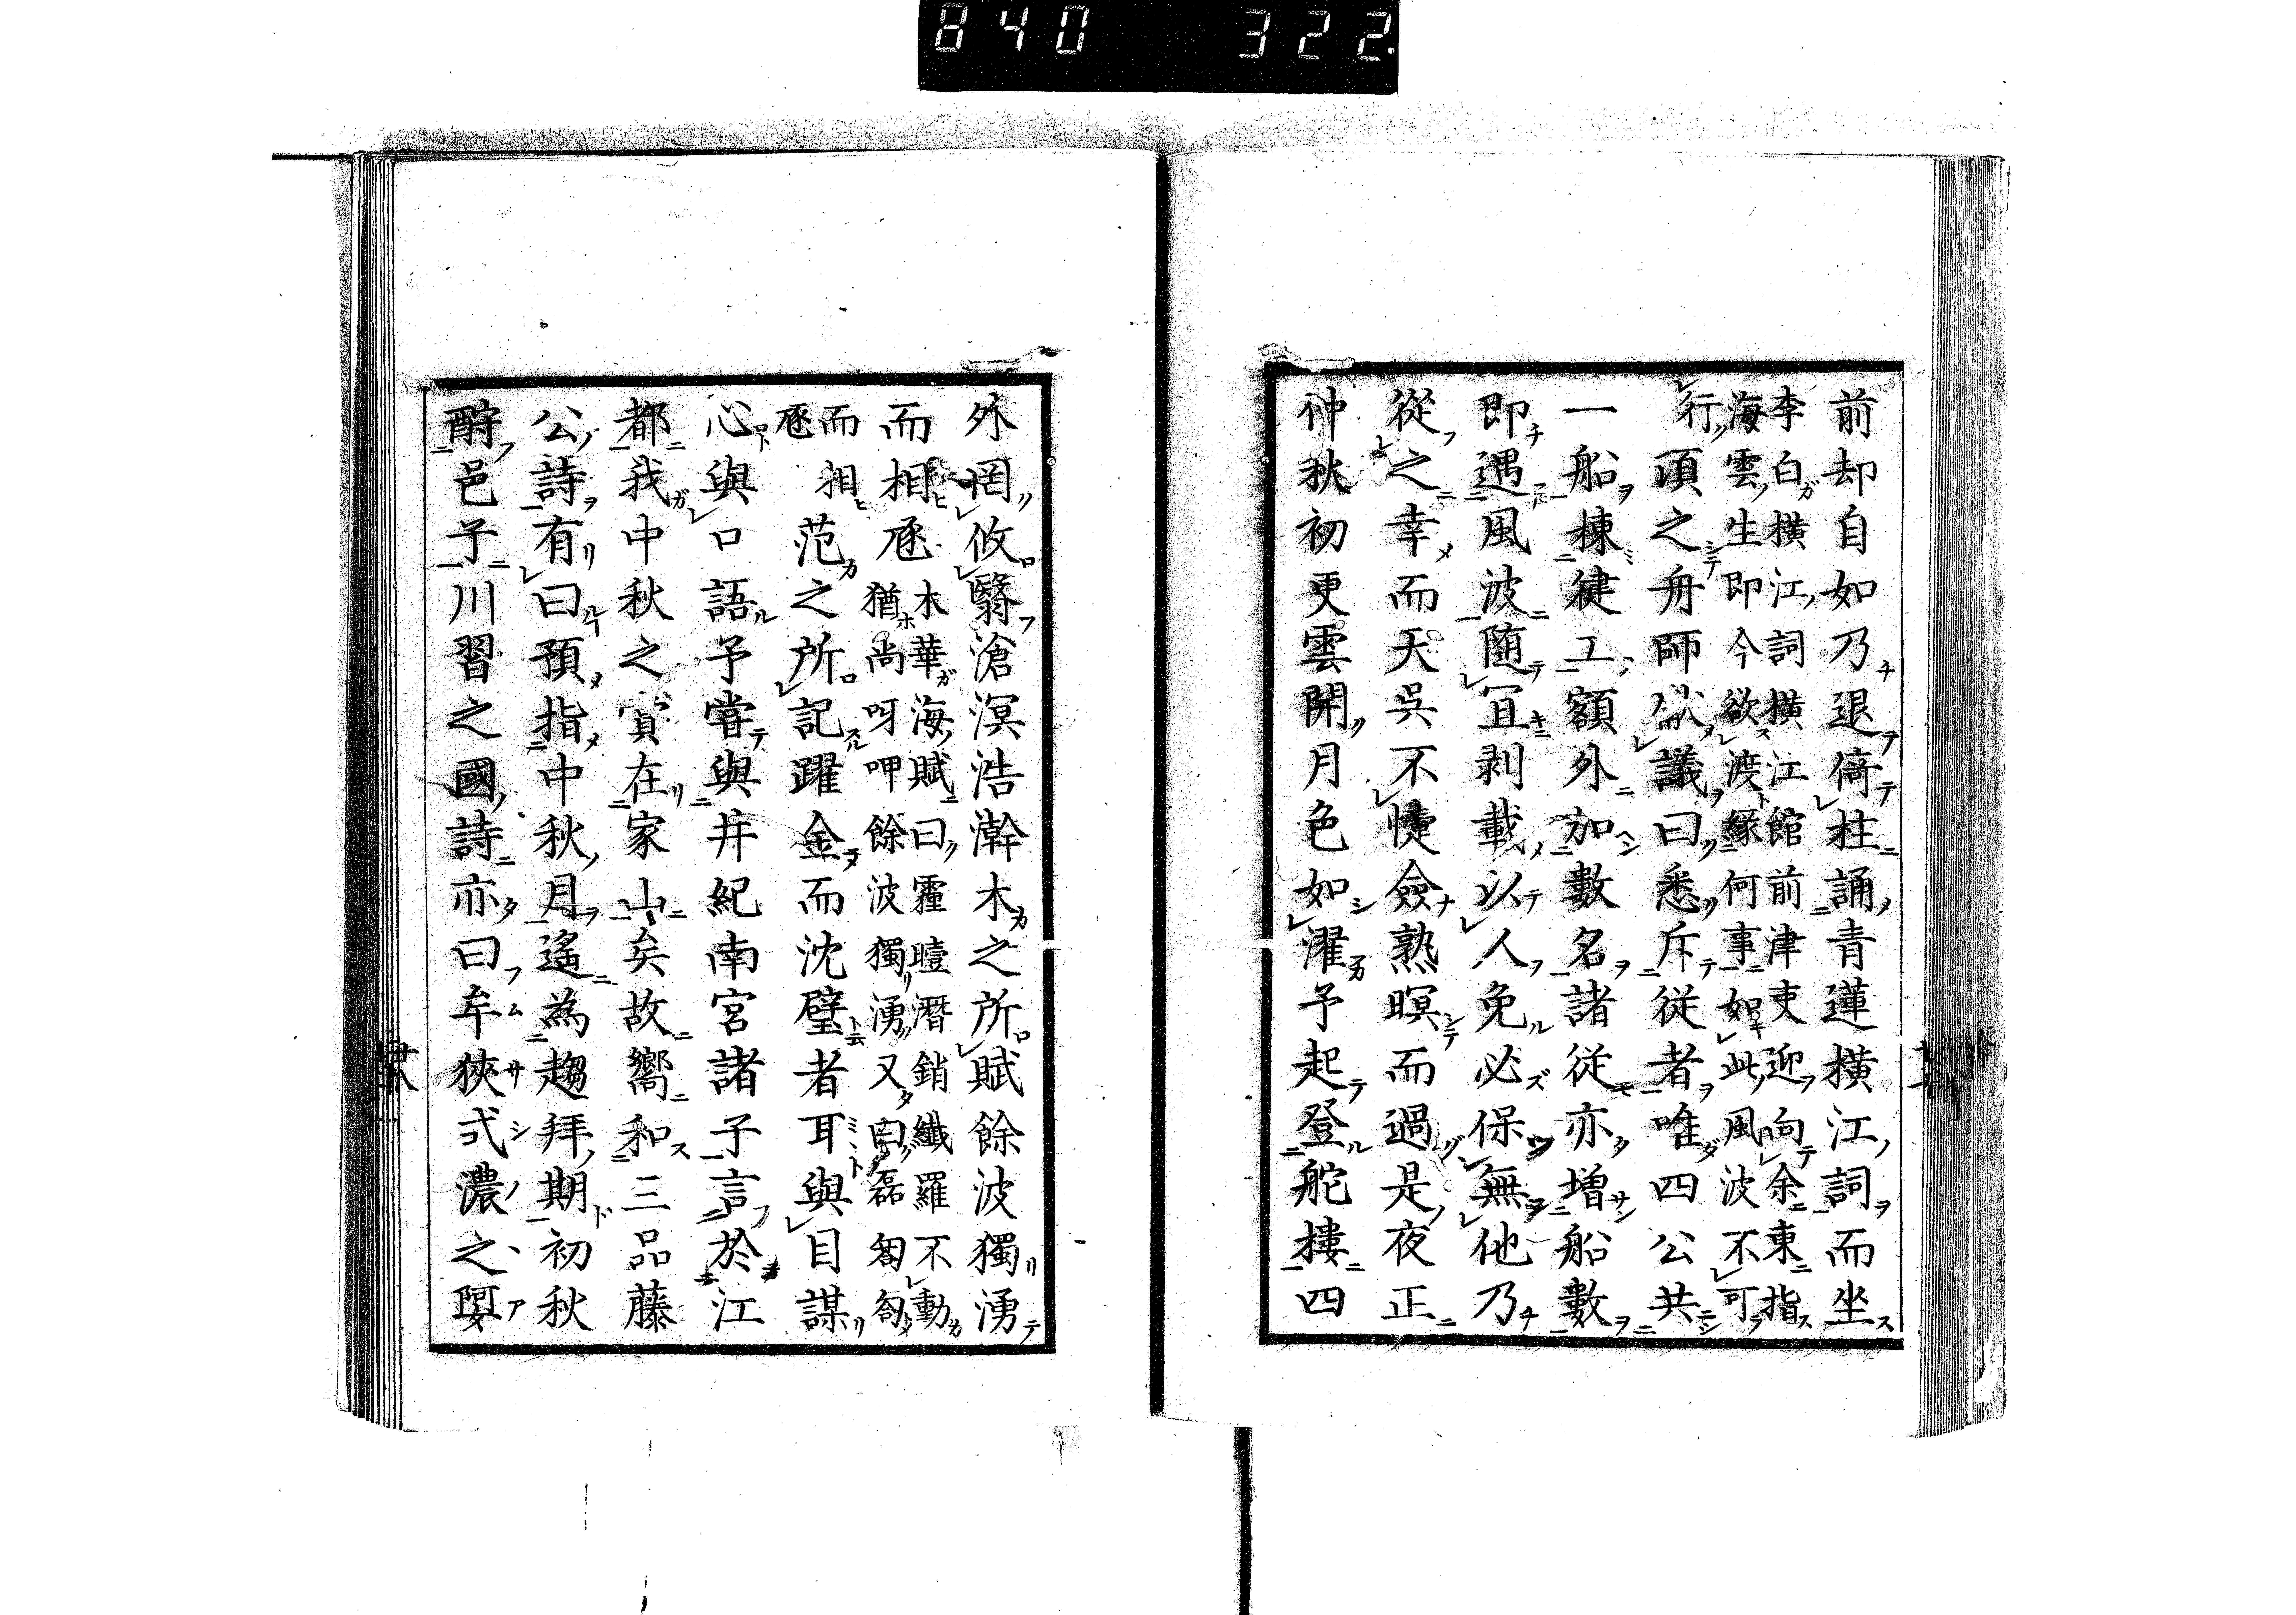 840 322.
前却自如乃退倚柱誦青蓮横江詞而坐
李白横江詞横江館前津吏迎向余東指
海雲生即今欲渡縁何事如此風波不可
行
頃之舟師議曰悉斥従者唯四公共
一船棟健工額外加數名諸従亦増船數
即遇風波随宜剥載以人免必保無他乃
從之幸而天呉不悽僉熟暝而過是夜正
仲秋初更雲開月色如濯予起登舵摟四
外罔攸翳滄溟浩瀚木之所賦餘波獨湧
而相豗
木華海賦曰霾曀潛銷纖羅不動
猶尚呀呷餘波獨湧又曰磊匒匌
而相
豗
范之所記躍金而沈璧者耳與目謀
心與口語予嘗與井紀南宮諸子言於江
都我中秋之實在家山矣故嚮和三品藤
公詩有曰預指中秋月遙為趨拜期初秋
酹邑子川習之國詩亦曰牟狹弍濃之阿